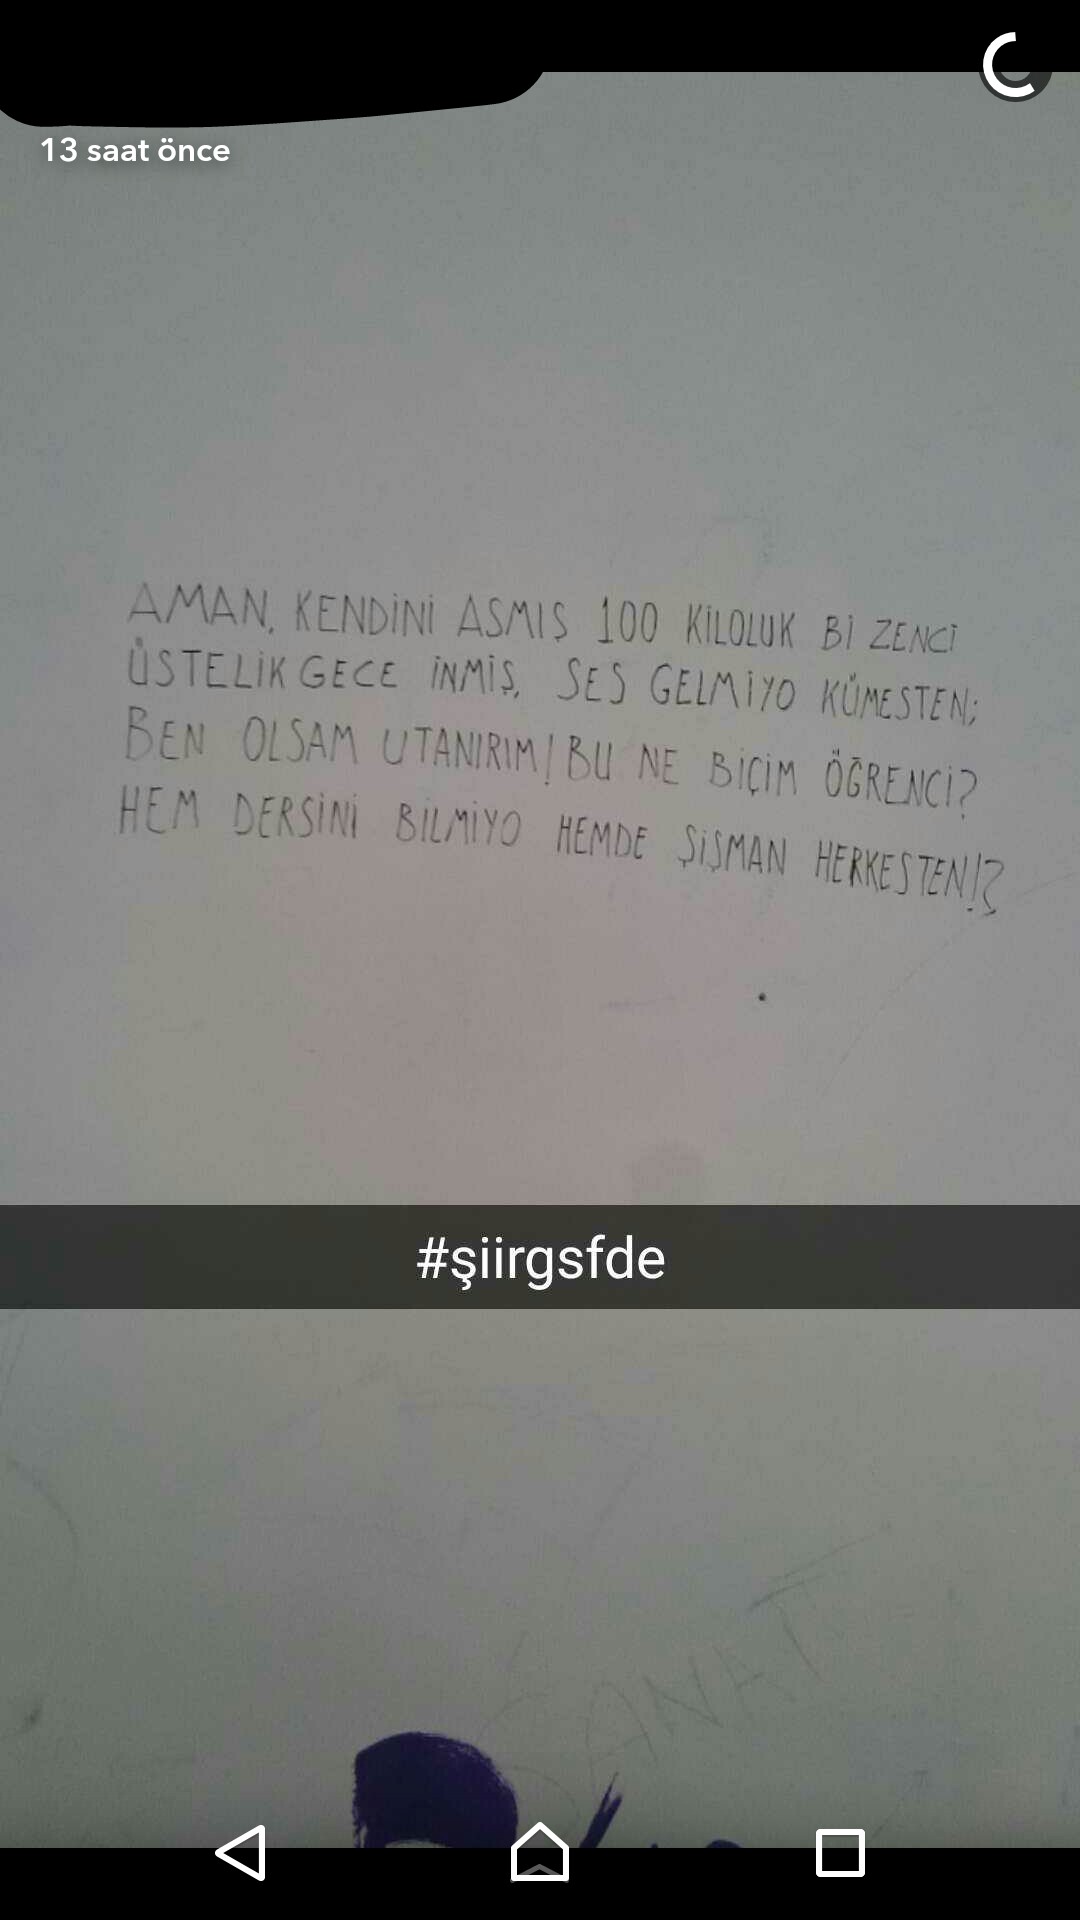 13 saat önce
AMAN, KENDİNİ ASMIŞ 100 KİLOLUK Bİ ZENCİ
ÜSTELİK GECE İNMİŞ, SES GELMİYO KÜMESTEN;
BEN OLSAM UTANIRIM! BU NE BİÇİM ÖĞRENCİ?
HEM DERSİNİ BİLMİYO HEMDE ŞİŞMAN HERKESTEN!?
#şiirgsfde
SANAT